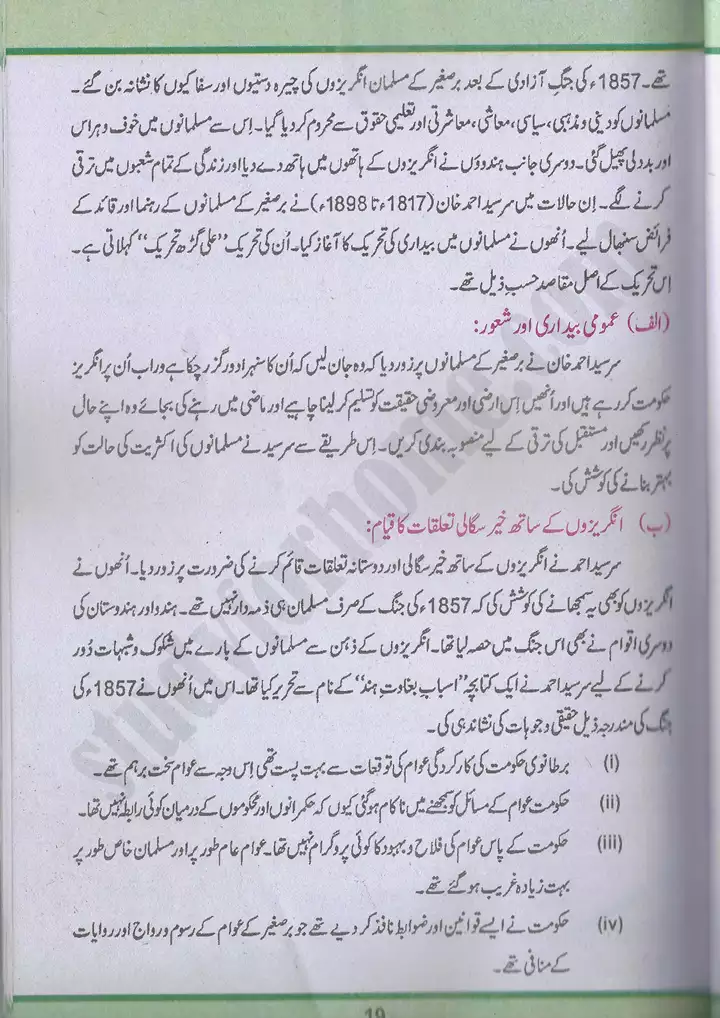 تھے۔ 1857ء کی جنگِ آزادی کے بعد برصغیر کے مسلمان انگریزوں کی چیرہ دستیوں اور سفاکیوں کا نشانہ بن گئے۔
مسلمانوں کو دینی و مذہبی، سیاسی، معاشی، معاشرتی اور تعلیمی حقوق سے محروم کر دیا گیا۔ اِس سے مسلمانوں میں خوف و ہراس
اور بددلی پھیل گئی۔ دوسری جانب ہندوؤں نے انگریزوں کے ہاتھوں میں ہاتھ دے دیا اور زندگی کے تمام شعبوں میں ترقی
کرنے لگے۔ اِن حالات میں سرسید احمد خان (1817ء تا 1898ء) نے برصغیر کے مسلمانوں کے رہنما اور قائد کے
فرائض سنبھال لیے۔ اُنھوں نے مسلمانوں میں بیداری کی تحریک کا آغاز کیا۔ اُن کی تحریک ”علی گڑھ تحریک“ کہلاتی ہے۔
اِس تحریک کے اصل مقاصد حسب ذیل تھے۔
(الف) عمومی بیداری اور شعور:
سرسید احمد خان نے برصغیر کے مسلمانوں پر زور دیا کہ وہ جان لیں کہ اُن کا سنہرا دور گزر چکا ہے وراب اُن پر انگریز
حکومت کر رہے ہیں اور اُنھیں اِس ارضی اور معروضی حقیقت کو تسلیم کر لینا چاہیے اور ماضی میں رہنے کی بجائے وہ اپنے حال
پر نظر رکھیں اور مستقبل کی ترقی کے لیے منصوبہ بندی کریں۔ اِس طریقے سے سرسید نے مسلمانوں کی اکثریت کی حالت کو
بہتر بنانے کی کوشش کی۔
(ب) انگریزوں کے ساتھ خیر سگالی تعلقات کا قیام:
سرسید احمد نے انگریزوں کے ساتھ خیر سگالی اور دوستانہ تعلقات قائم کرنے کی ضرورت پر زور دیا۔ اُنھوں نے
انگریزوں کو بھی یہ سمجھانے کی کوشش کی کہ 1857ء کی جنگ کے صرف مسلمان ہی ذمہ دار نہیں تھے۔ ہندو اور ہندوستان کی
دوسری اقوام نے بھی اس جنگ میں حصہ لیا تھا۔ انگریزوں کے ذہن سے مسلمانوں کے بارے میں شکوک و شبہات دُور
کرنے کے لیے سرسید احمد نے ایک کتابچہ ”اسبابِ بغاوتِ ہند“ کے نام سے تحریر کیا تھا۔ اس میں اُنھوں نے 1857ء کی
جنگ کی مندرجہ ذیل حقیقی وجوہات کی نشاندہی کی۔
(i) برطانوی حکومت کی کارکردگی عوام کی توقعات سے بہت پست تھی اِس وجہ سے عوام سخت برہم تھے۔
(ii) حکومت عوام کے مسائل کو سمجھنے میں ناکام ہو گئی کیوں کہ حکمرانوں اور محکوموں کے درمیان کوئی رابطہ نہیں تھا۔
(iii) حکومت کے پاس عوام کی فلاح و بہبود کا کوئی پروگرام نہیں تھا۔ عوام عام طور پر اور مسلمان خاص طور پر
بہت زیادہ غریب ہو گئے تھے۔
(iv) حکومت نے ایسے قوانین اور ضوابط نافذ کر دیے تھے جو برصغیر کے عوام کے رسوم و رواج اور روایات
کے منافی تھے۔
19
studyforhome.com